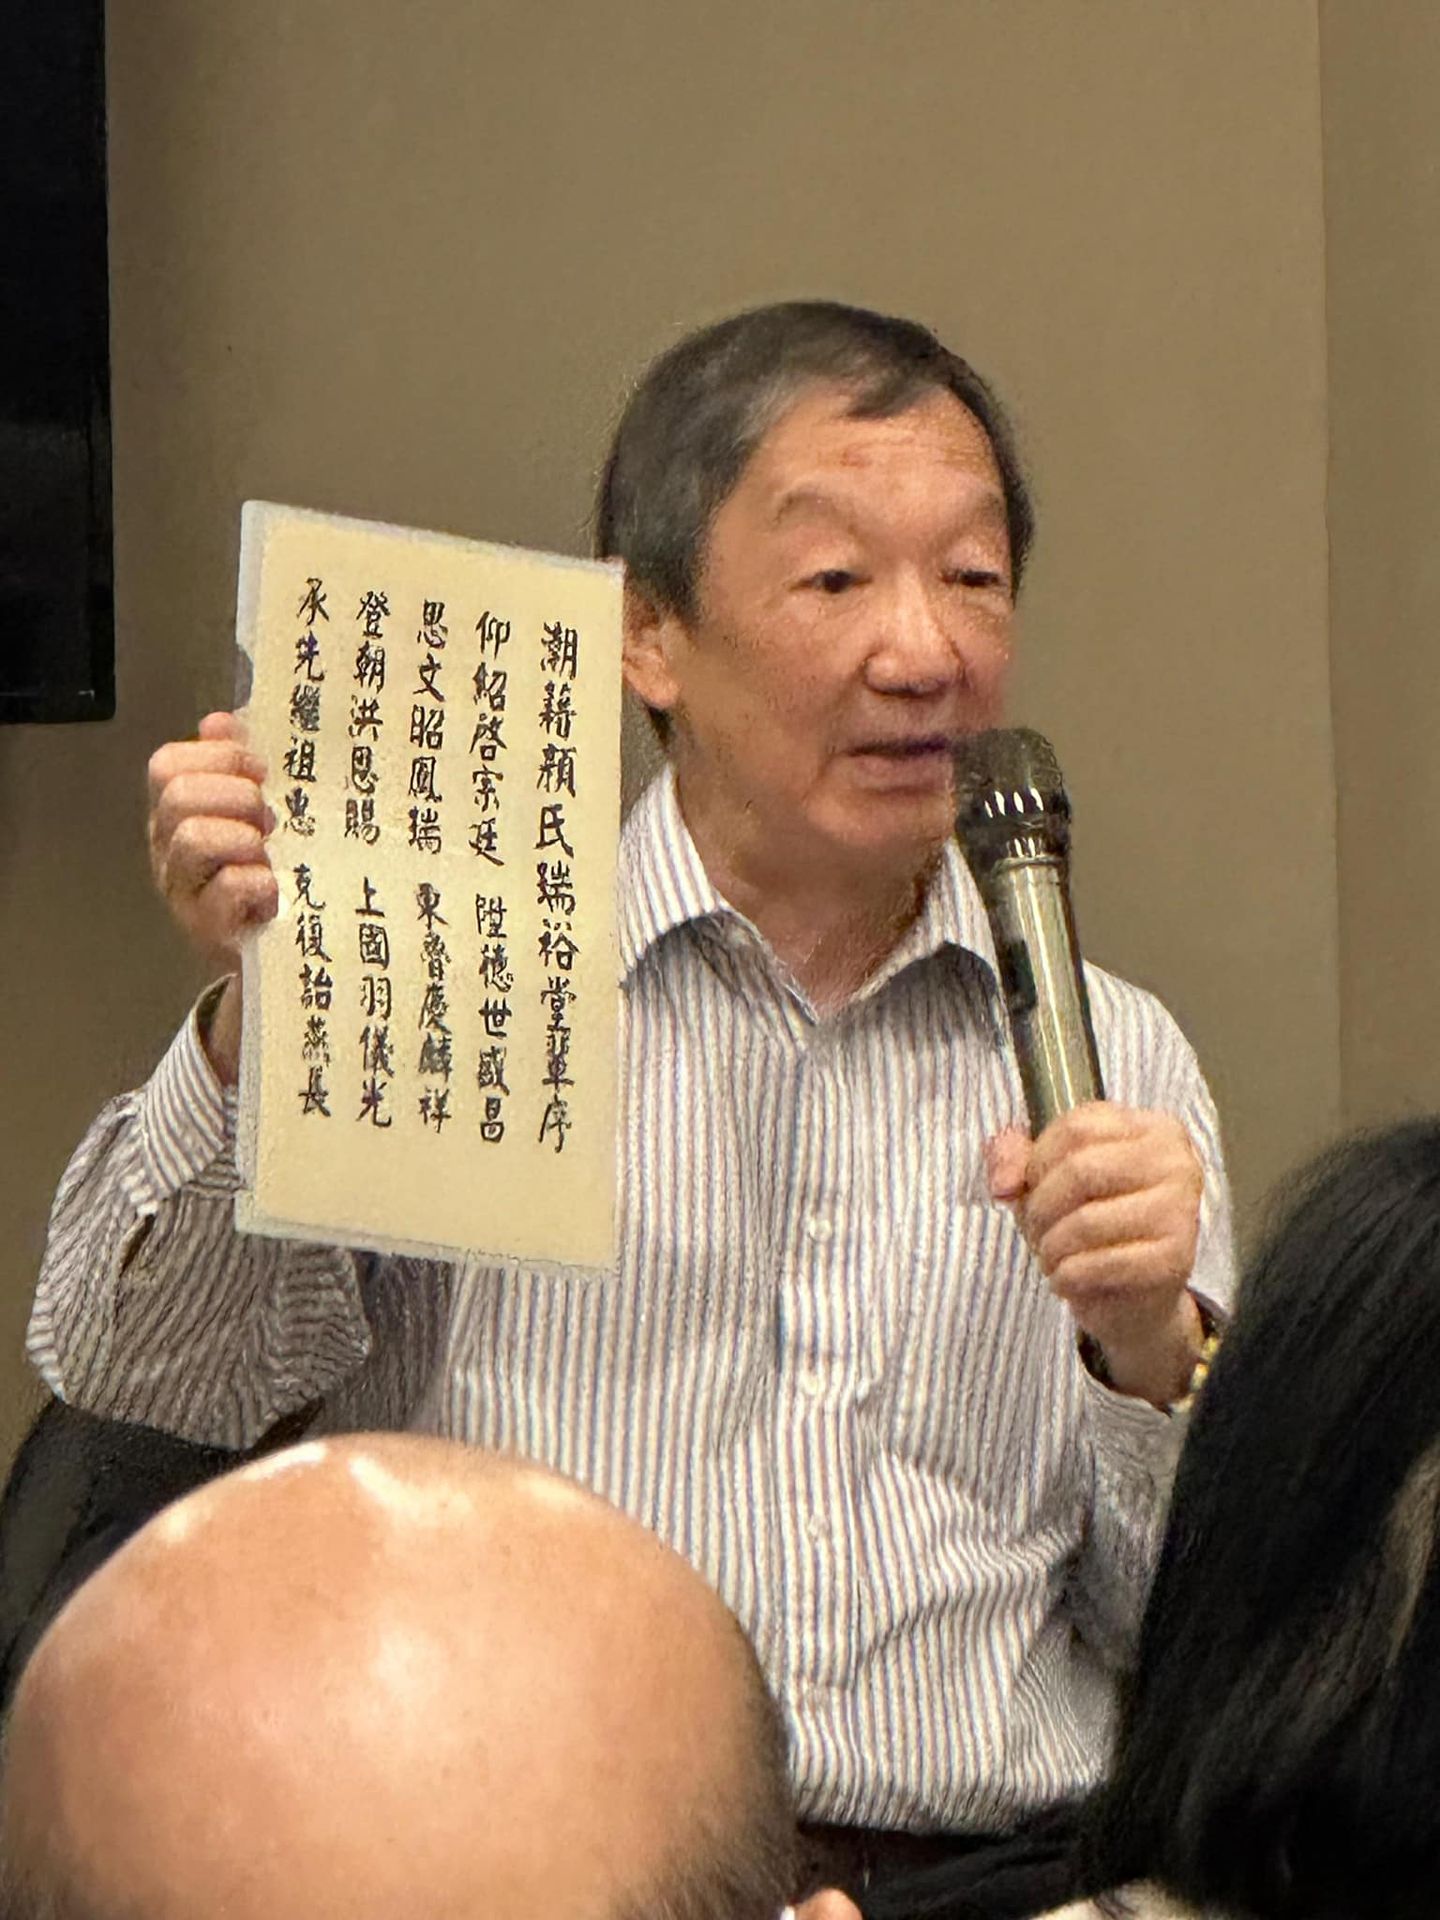 潮籍顏氏瑞裕堂輩序
仰紹啓宗廷 陞德世盛昌
思文昭鳳瑞 東魯慶麟祥
登朝洪恩賜 上國羽儀光
承先繼祖忠 克復詒燕長